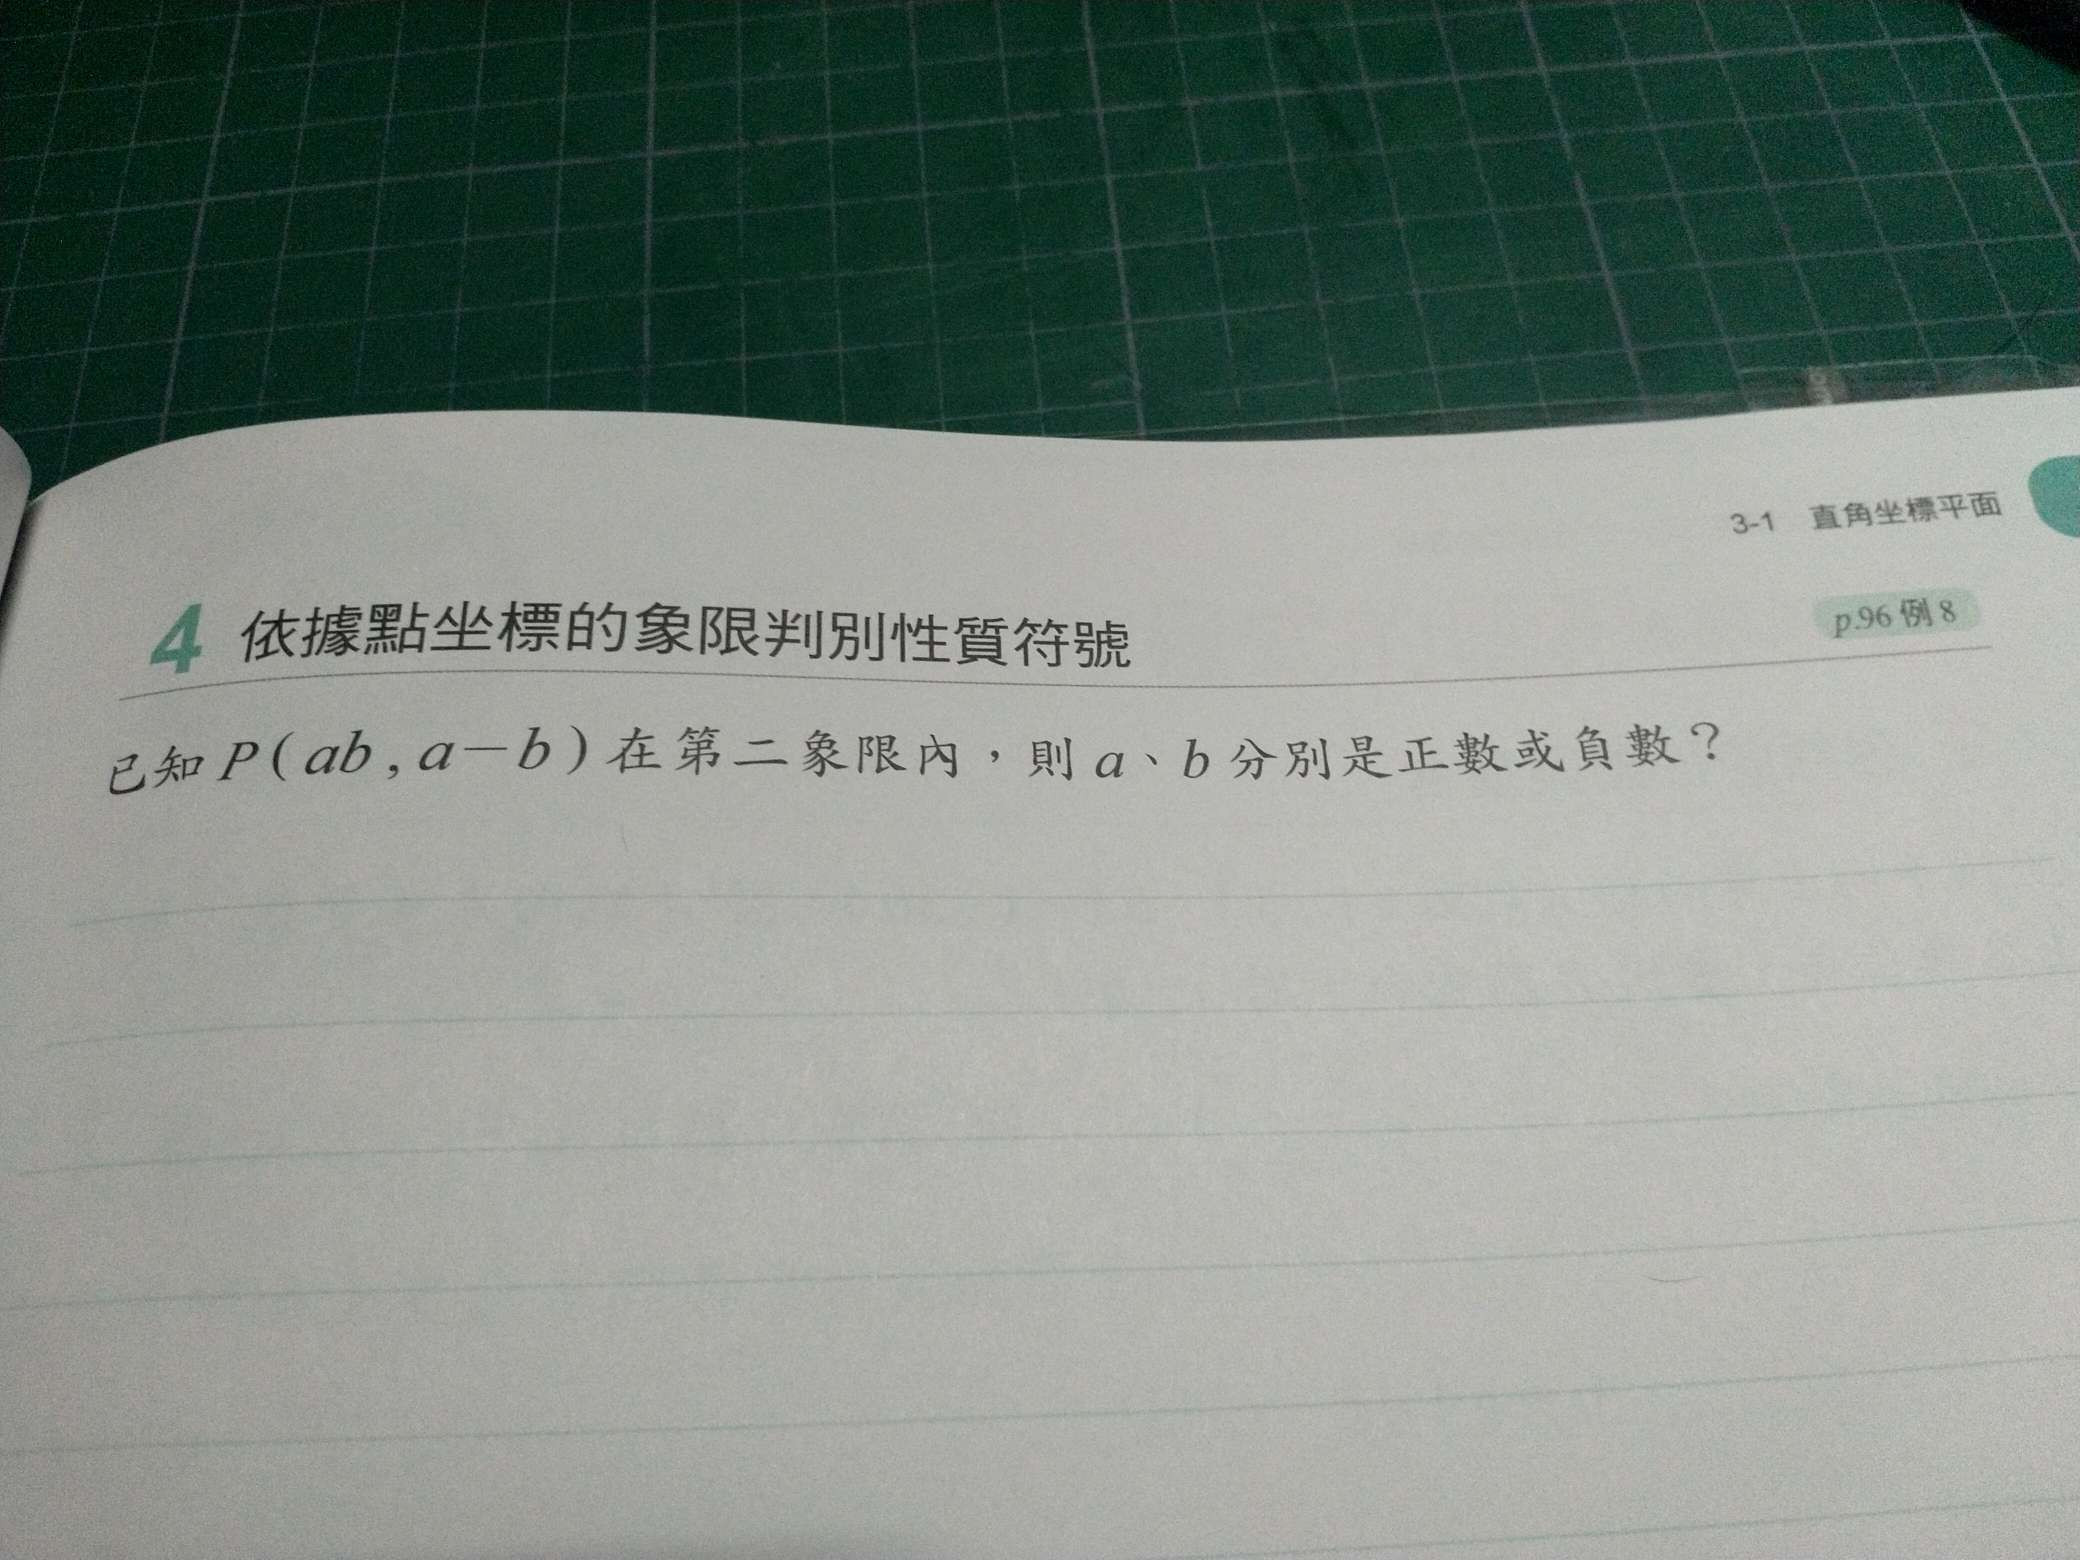 3-1 直角坐標平面
4 依據點坐標的象限判別性質符號 p.96 例 8
已知 P(ab,a－b)在第二象限內，則 a、b 分別是正數或負數？